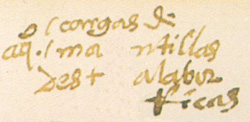 cargas de
mantillas
desta labor
Ricas